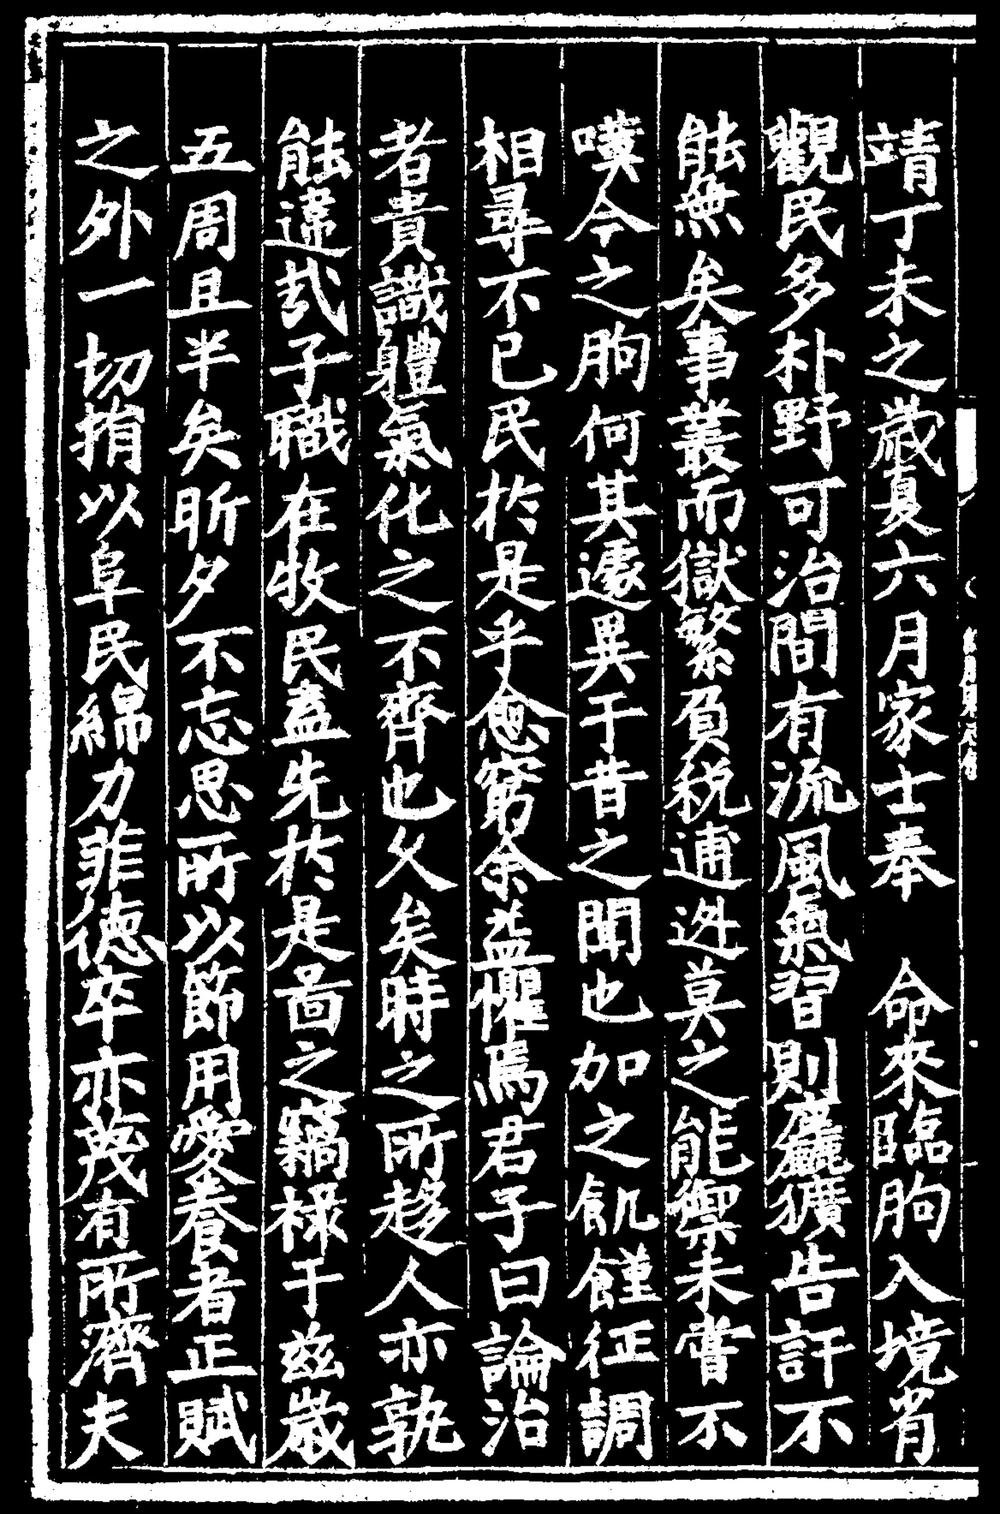 靖丁未之歲夏六月家士奉　命來臨朐入境省
觀民多朴野可治間有流風氣習則麤獷告訐不
能無矣事叢而獄繁負税逋逃莫之能禦未嘗不
嘆今之朐何其遽異于昔之聞也加之飢饉征調
相尋不已民於是乎愈窮余益懼焉君子曰論治
者貴識體氣化之不齊也久矣時之所趍人亦孰
能違哉子職在牧民蓋先於是啚之竊祿于茲歲
五周且半矣昕夕不忘思所以節用愛養者正賦
之外一切捐以阜民綿力菲德卒亦蔑有所濟夫